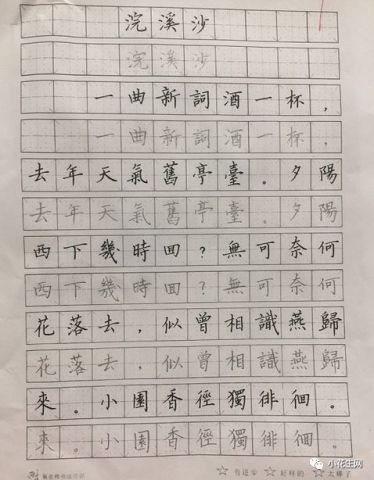 浣溪沙
浣溪沙
一曲新詞酒一杯，
一曲新詞酒一杯，
去年天氣舊亭臺。夕陽
去年天氣舊亭臺。夕陽
西下幾時回？無可奈何
西下幾時回？無可奈何
花落去，似曾相識燕歸
花落去，似曾相識燕歸
來。小園香徑獨徘徊。
來。小園香徑獨徘徊。
☆ 有进步 ☆ 好样的 ☆ 太棒了
小花生网